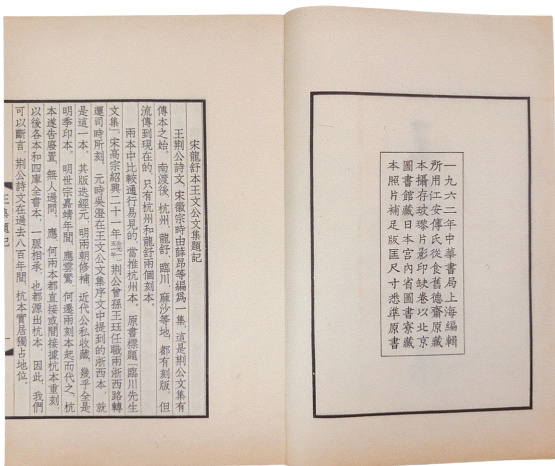 一九六二年中華書局上海編輯
所用江安傅氏從食舊德齋原藏
本攝存玻璃片影印缺卷以北京
圖書館藏日本宮內省圖書寮藏
本照片補足版匡尺寸悉準原書
宋龍舒本王文公文集題記
王荆公詩文，宋徽宗時由薛昂等編爲一集，這是荆公文集有
傳本之始。南渡後，杭州、龍舒、臨川、麻沙等地，都有刻版，但
流傳到現在的，只有杭州和龍舒兩個刻本。
兩本中比較通行易見的，當推杭州本。原書標題「臨川先生
文集」，宋高宗紹興二十一年，荆公曾孫王珏任職兩浙西路轉
運司時所刻。元時吳澄在王文公文集序文中提到的浙西本，就
是這一本。其版迭經元、明兩朝修補，近代公私收藏，幾乎全是
明季印本。明世宗嘉靖年間，應雲鸑、何遷兩刻本起而代之，杭
本遂告廢置，無人過問。應、何兩本都直接或間接據杭本重刻，
以後各本和四庫全書本，一脈相承，也都源出杭本。因此，我們
可以斷言，荆公詩文在過去八百年間，杭本實居獨占地位。